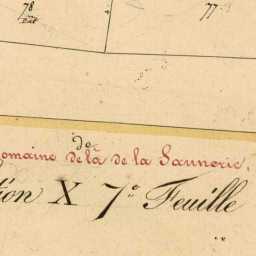 78 77
do
omaine de la de la Saunerie.
tion X 7e Feuille